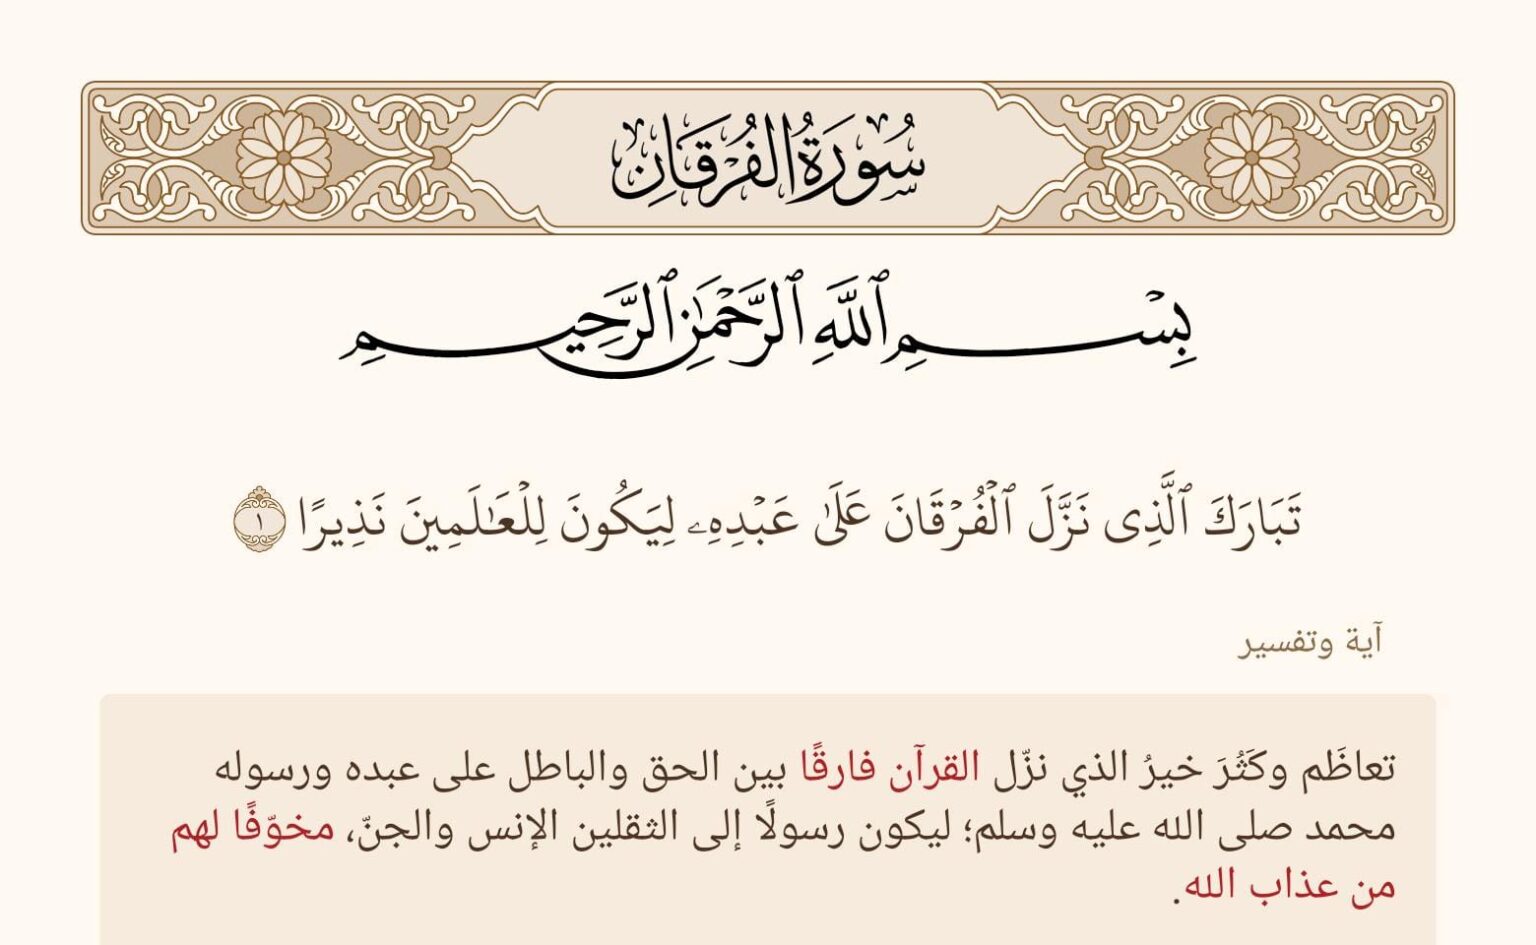 سُورَةُ الفُرْقَانِ
بِسْمِ ٱللَّهِ ٱلرَّحْمَٰنِ ٱلرَّحِيمِ
تَبَارَكَ ٱلَّذِى نَزَّلَ ٱلْفُرْقَانَ عَلَىٰ عَبْدِهِۦ لِيَكُونَ لِلْعَـٰلَمِينَ نَذِيرًا ١
آية وتفسير
تعاظَم وكَثُرَ خيرُ الذي نزّل القرآن فارقًا بين الحق والباطل على عبده ورسوله
محمد صلى الله عليه وسلم؛ ليكون رسولًا إلى الثقلين الإنس والجنّ، مخوّفًا لهم
من عذاب الله.